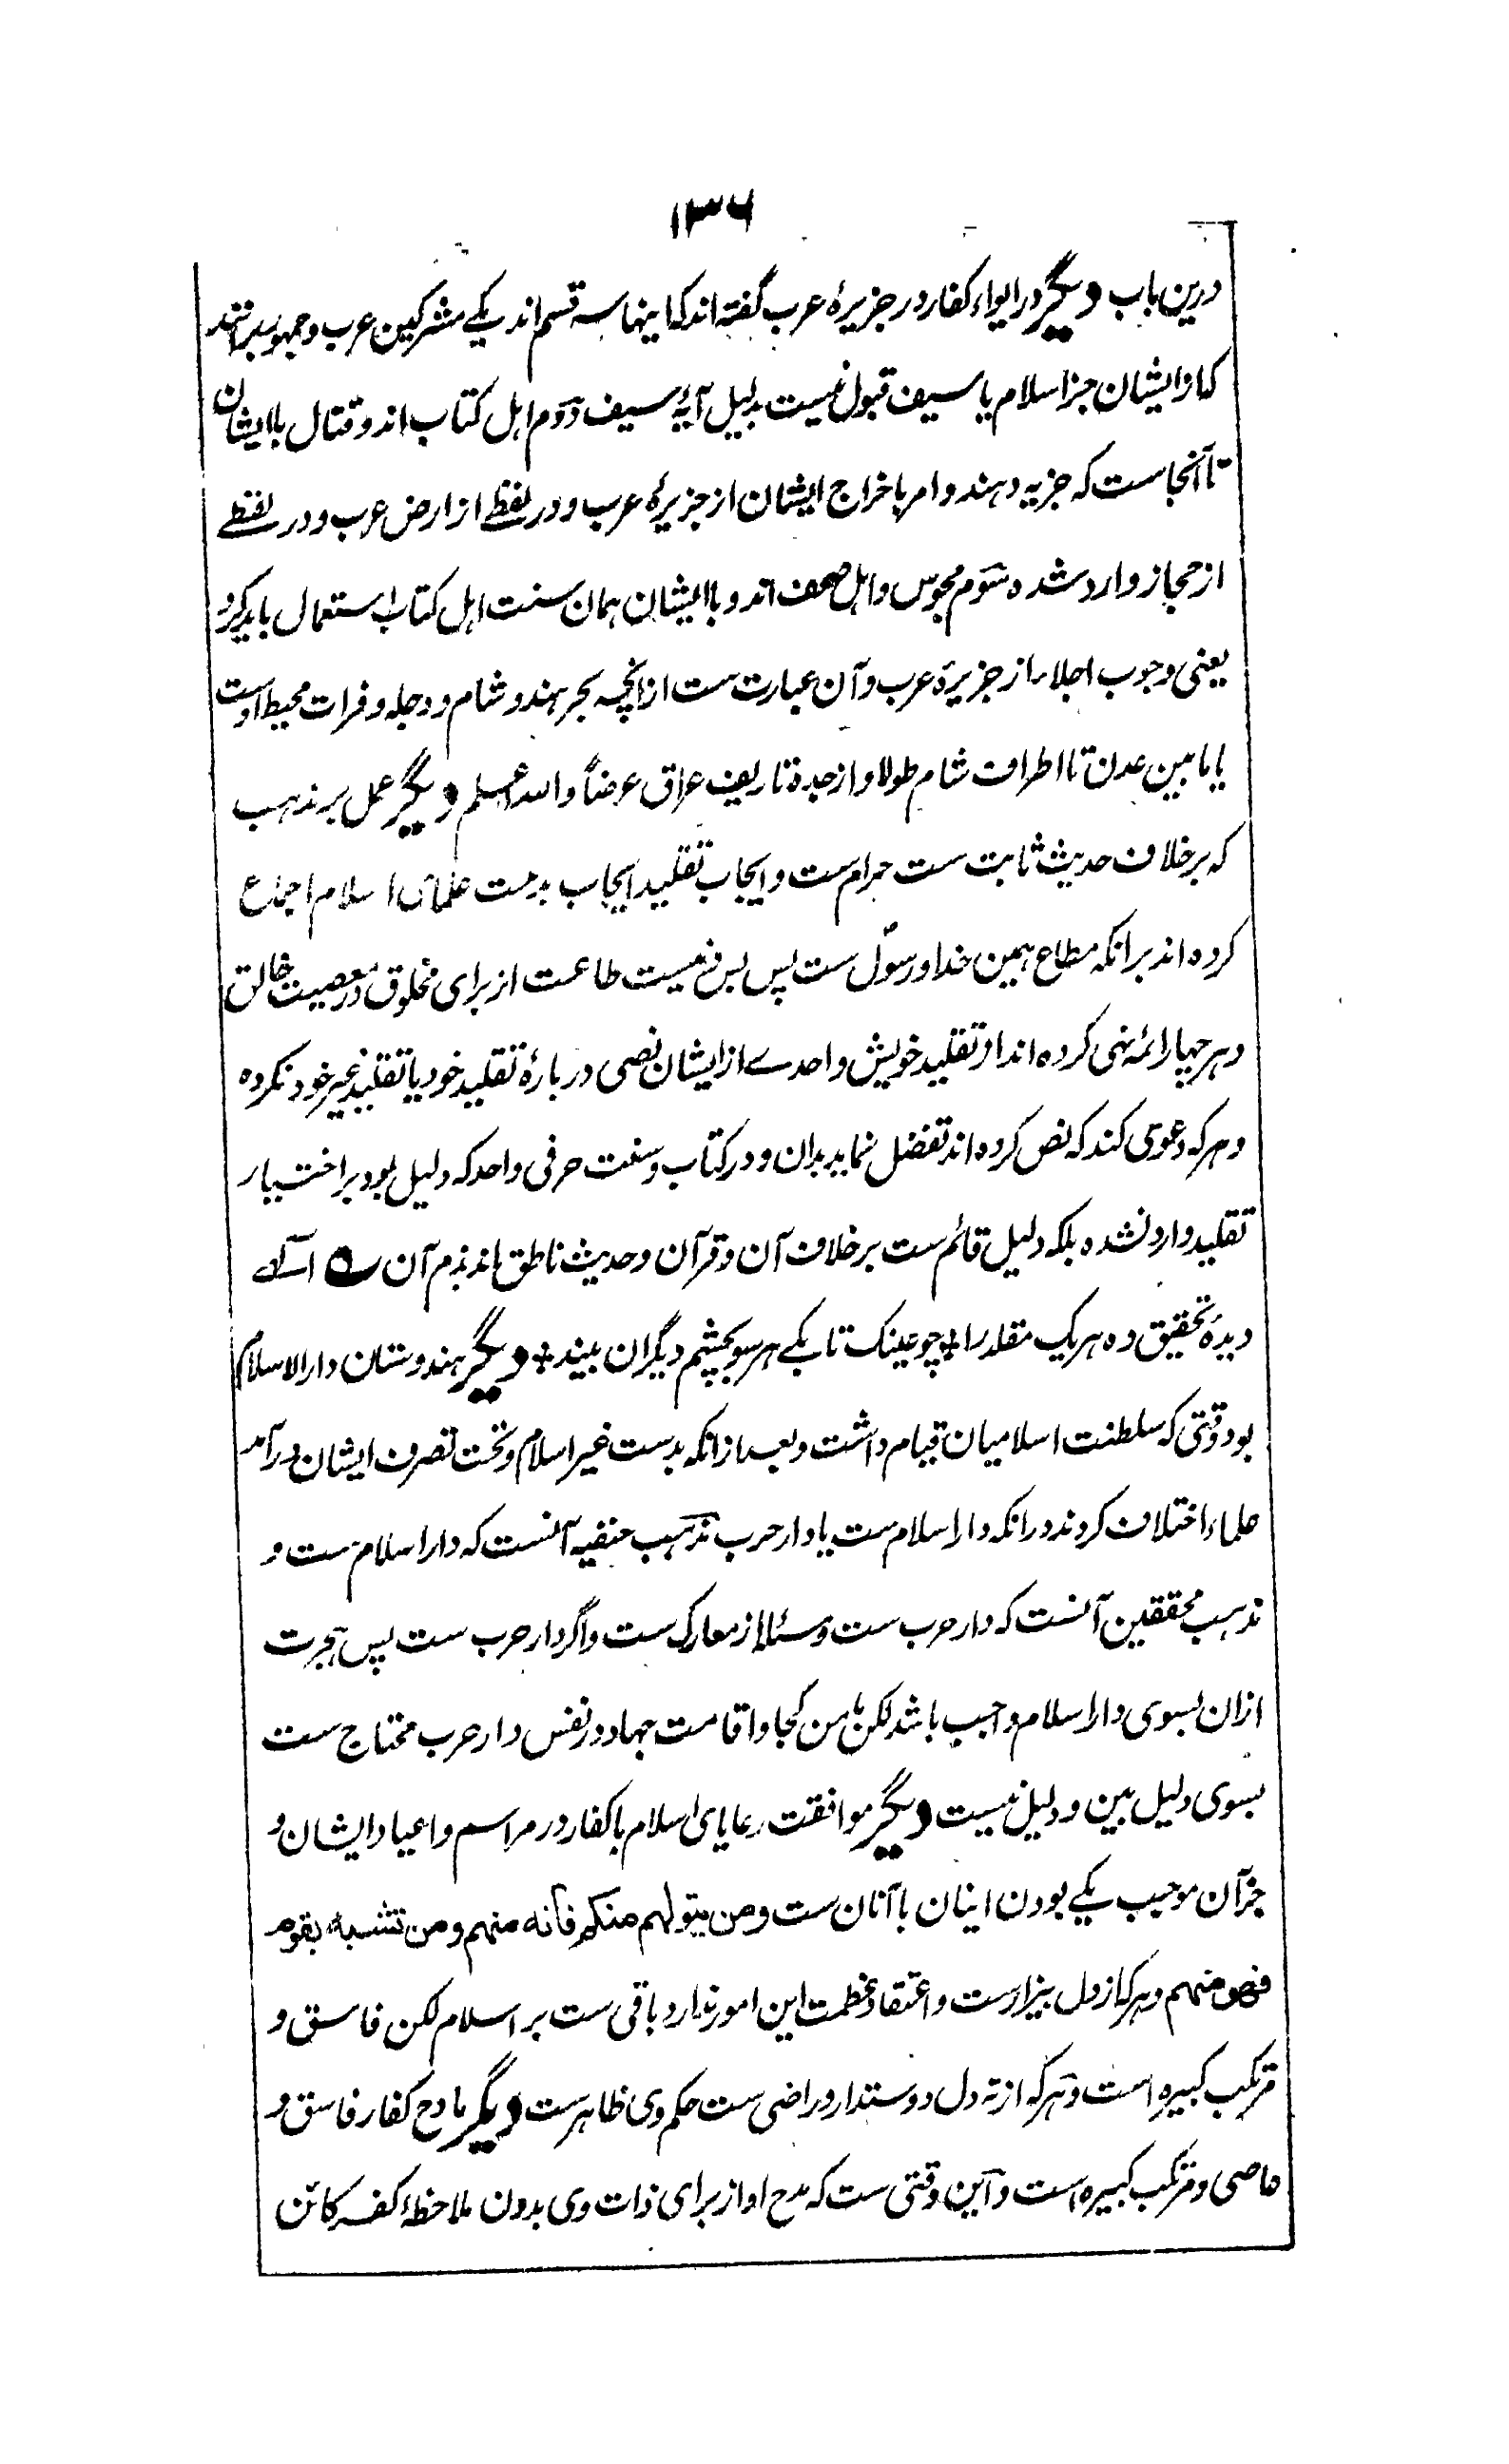 ۱۳۶
درین باب دیگر در ایواء کفار در جزیرهٔ عرب گفته اند که اینها سه قسم اند یکے مشرکین عرب و جمهور برانند
که از ایشان جز اسلام یا سیف قبول نیست بدلیل آیهٔ سیف دوم اهل کتاب اند و قتال با ایشان
تا آنجاست که جزیه دهند و امر باخراج ایشان از جزیرهٔ عرب و در لفظے از ارض عرب و در لفظے
از حجاز وارد شده سوم مجوس و اهل صحف اند و با ایشان همان سنت اهل کتاب استعمال باید کرد
یعنی وجوب اجلاء از جزیرهٔ عرب و آن عبارت ست از انچه بحر هند و شام و دجله و فرات محیط اوست
یا ما بین عدن تا اطراف شام طولا و از جده تا ریف عراق عرضاً والله اعلم دیگر عمل بر مذهب
که بر خلاف حدیث ثابت ست حرام ست و ایجاب تقلید ایجاب بدعت علمای اسلام اجماع
کرده اند برانکه مطاع همین خدا و رسول ست پس بس نیست طاعت از برای مخلوق در معصیت خالق
و هر چهار ائمه نهی کرده اند از تقلید خویش واحدے از ایشان نصی دربارهٔ تقلید خود یا تقلید غیر خود نکرده
و هر که دعوی کند که نص کرده اند تفضل نماید بدان و در کتاب و سنت حرفی واحد که دلیل بود بر اختیار
تقلید وارد نشده بلکه دلیل قائم ست بر خلاف آن و قرآن و حدیث ناطق اند بذم آن ۵ اے
دیدهٔ تحقیق ده هر یک مقلد را * چو عینک تا بکے هر سو بچشم دیگران بیند * دیگر هندوستان دار الاسلام
بود وقتی که سلطنت اسلامیان قیام داشت و بعد ازانکه بدست غیر اسلام و تحت تصرف ایشان درآمد
علماء اختلاف کردند درانکه دار اسلام ست یا دار حرب مذهب حنفیه آنست که دار اسلام ست و
مذهب محققین آنست که دار حرب ست و مسئله از معارک ست و اگر دار حرب ست پس هجرت
ازان بسوی دار اسلام واجب باشد لکن مامن کجا و اقامت جهاد در نفس دار حرب محتاج ست
بسوی دلیل بین و دلیل نیست دیگر موافقت رعایای اسلام با کفار در مراسم و اعیاد ایشان و
جز آن موجب یکے بودن اینان با آنان ست ومن یتولهم منکم فانه منهم ومن تشبه بقوم
فهو منهم و هر که از دل بیزار ست و اعتقاد عظمت این امور ندارد باقی ست بر اسلام لکن فاسق و
مرتکب کبیره است و هر که از ته دل دوستدار و راضی ست حکم وی ظاهر ست دیگر مادح کفار فاسق و
عاصی و مرتکب کبیره است و این وقتی ست که مدح او از برای ذات وی بدون ملاحظهٔ کفر کائن